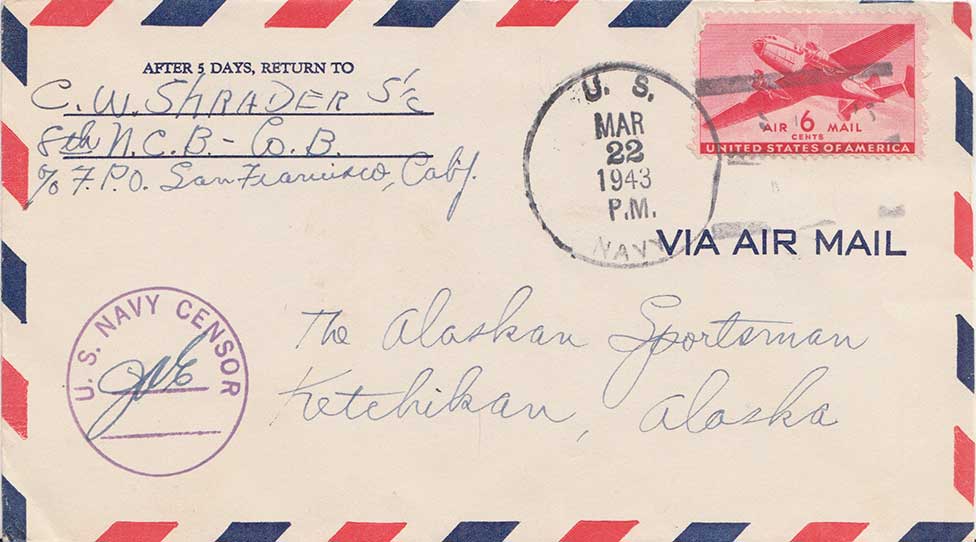 AFTER 5 DAYS, RETURN TO
C. W. SHRADER S1/c
8th N.C.B. - Co. B.
℅ F.P.O. San Francisco, Calif.
U. S.
MAR
22
1943
P.M.
NAVY
AIR 6 MAIL
CENTS
UNITED STATES OF AMERICA
VIA AIR MAIL
U. S. NAVY CENSOR
The Alaskan Sportsman
Ketchikan, Alaska